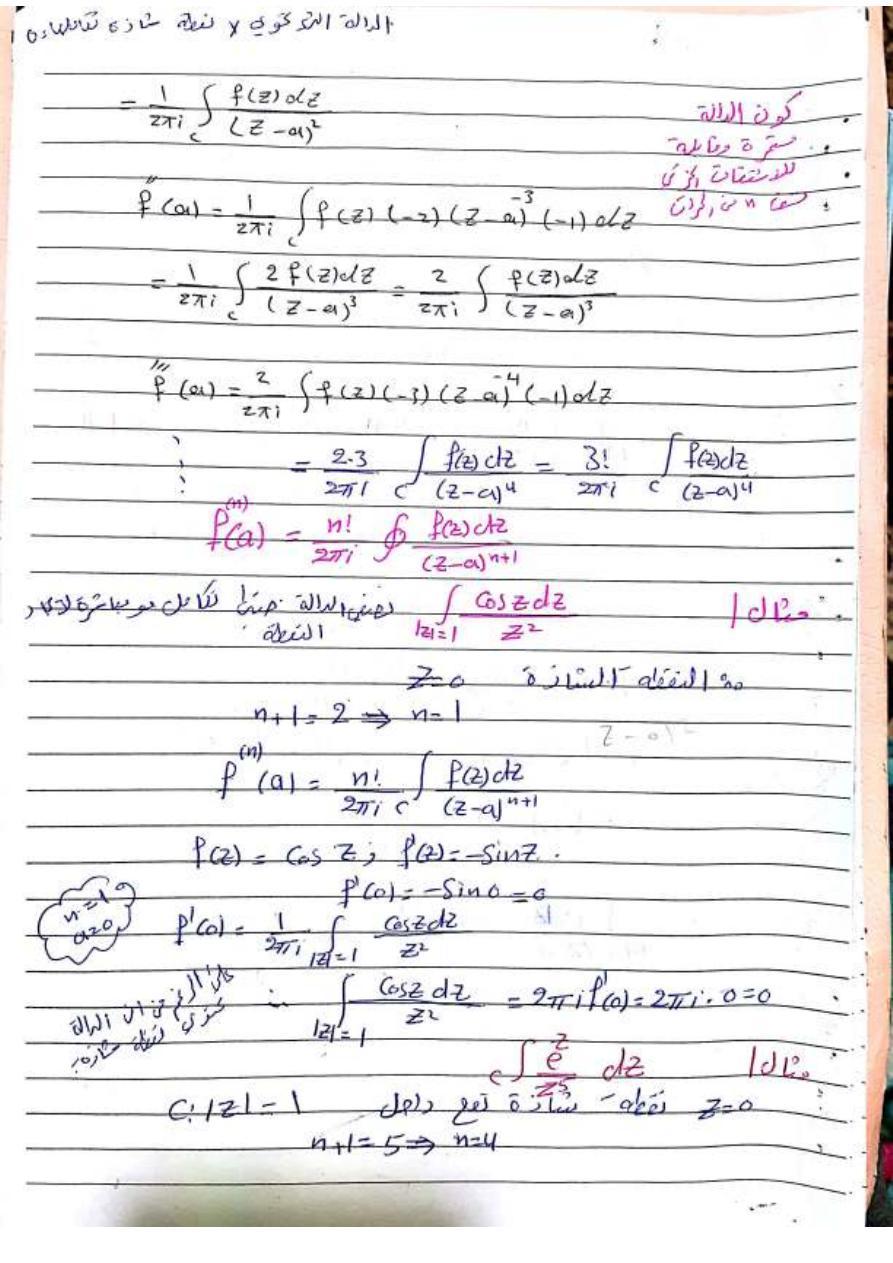 الدالة التي تحوي لا نقطة شاذة تكاملها = 0
= 1/2πi ∫_c f(z)dz/(z-a)²
كون الدالة
مستمرة وقابلة
للاشتقاق
n من المرات
f''(a) = 1/2πi ∫_c f(z)(-2)(z-a)^-3 (-1)dz
= 1/2πi ∫_c 2f(z)dz/(z-a)³ = 2/2πi ∫ f(z)dz/(z-a)³
f'''(a) = 2/2πi ∫ f(z)(-3)(z-a)^-4 (-1)dz
= 2.3/2πi ∫_c f(z)dz/(z-a)^4 = 3!/2πi ∫_c f(z)dz/(z-a)^4
f^(n)(a) = n!/2πi ∮ f(z)dz/(z-a)^n+1
مثال/ ∫_|z|=1 cosz dz/z² الدالة مباشرة
النقطة
النقطة الشاذة z=0
n+1=2 ⇒ n=1
f^(n)(a) = n!/2πi ∫_c f(z)dz/(z-a)^n+1
f(z) = cos z ; f'(z) = -sinz .
f'(0) = -sin0 = 0
n=1
a=0
f'(0) = 1/2πi ∫_|z|=1 cosz dz/z²
∴ ∫_|z|=1 cosz dz/z² = 2πi f'(0) = 2πi . 0 = 0
على الرغم من ان الدالة
تحوي نقطة شاذة
مثال/ c∫ e^z/z^5 dz
z=0 نقطة شاذة تقع داخل C: |z|=1
n+1=5 ⇒ n=4